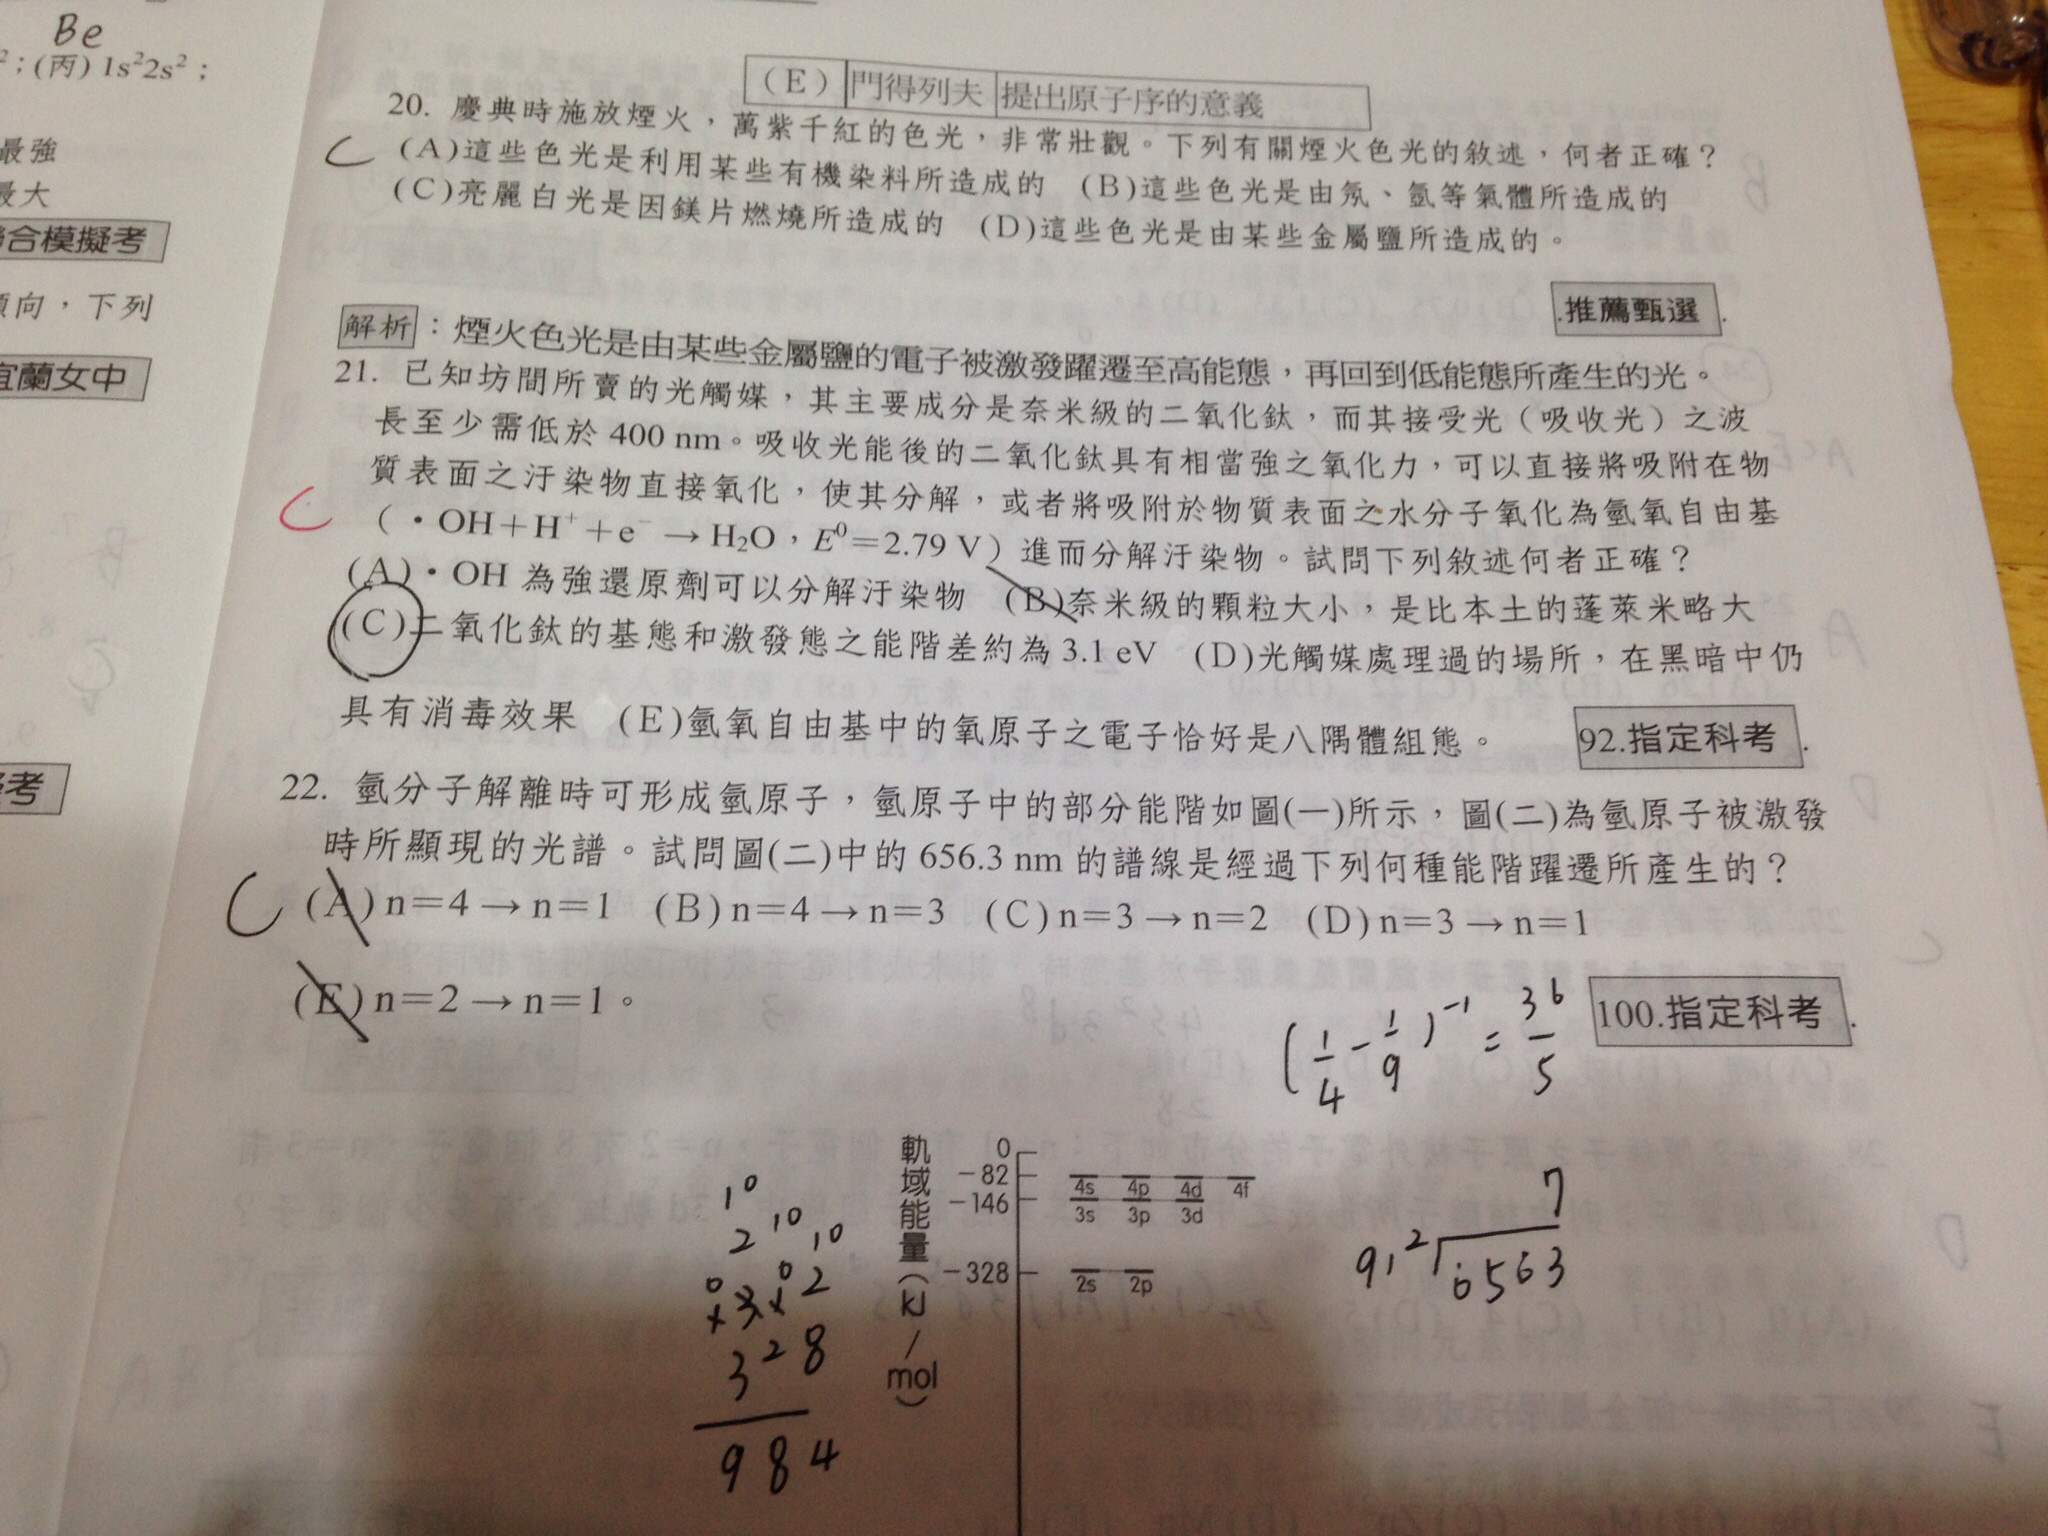 Be
²；(丙) 1s²2s²；
最強
最大
合模擬考
傾向，下列
宜蘭女中
考
(E) 門得列夫 提出原子序的意義
20. 慶典時施放煙火，萬紫千紅的色光，非常壯觀。下列有關煙火色光的敘述，何者正確？
C
(A)這些色光是利用某些有機染料所造成的 (B)這些色光是由氖、氬等氣體所造成的
(C)亮麗白光是因鎂片燃燒所造成的 (D)這些色光是由某些金屬鹽所造成的。
.推薦甄選.
解析：煙火色光是由某些金屬鹽的電子被激發躍遷至高能態，再回到低能態所產生的光。
21. 已知坊間所賣的光觸媒，其主要成分是奈米級的二氧化鈦，而其接受光（吸收光）之波
長至少需低於 400 nm。吸收光能後的二氧化鈦具有相當強之氧化力，可以直接將吸附在物
質表面之汙染物直接氧化，使其分解，或者將吸附於物質表面之水分子氧化為氫氧自由基
C
（・OH＋H⁺＋e⁻→H₂O，E⁰＝2.79 V）進而分解汙染物。試問下列敘述何者正確？
(A)・OH 為強還原劑可以分解汙染物 (B)奈米級的顆粒大小，是比本土的蓬萊米略大
(C)二氧化鈦的基態和激發態之能階差約為 3.1 eV (D)光觸媒處理過的場所，在黑暗中仍
具有消毒效果 (E)氫氧自由基中的氧原子之電子恰好是八隅體組態。 92.指定科考.
22. 氫分子解離時可形成氫原子，氫原子中的部分能階如圖(一)所示，圖(二)為氫原子被激發
時所顯現的光譜。試問圖(二)中的 656.3 nm 的譜線是經過下列何種能階躍遷所產生的？
C
(A) n＝4→n＝1 (B) n＝4→n＝3 (C) n＝3→n＝2 (D) n＝3→n＝1
(E) n＝2→n＝1。
100.指定科考.
(1/4 - 1/9)⁻¹ = 36/5
軌域能量（kJ／mol）
0
－82 4s 4p 4d 4f
－146 3s 3p 3d
－328 2s 2p
328
984
7
912 6563